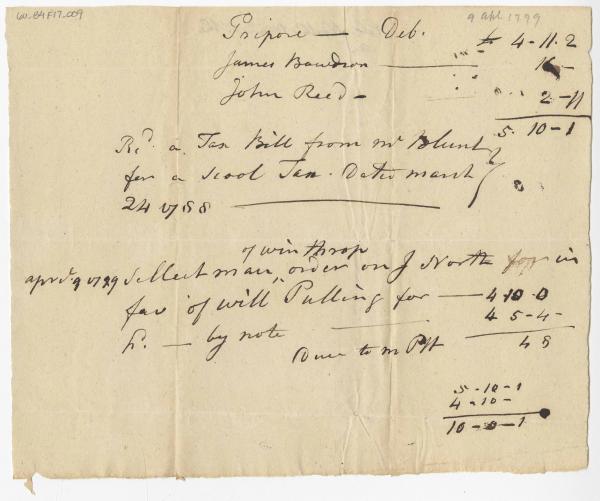 60.84F17.009
9 apl 1799
Pripore — Deb. £ 4-11.2
James Bawdson — 16-
John Reed - 2-11
5. 10-1
Rcd a Tax Bill from mr Blunt
for a scool Tax. Dated march
24 1788
of winthrop
aprl 9 1799 Sellect man, order on J North for in
fav of will Pulling for — 4-10-0
4 5-4-
Do. — by note
Due to m Ptt 4 8
5-10-1
4-10-
10-0-1